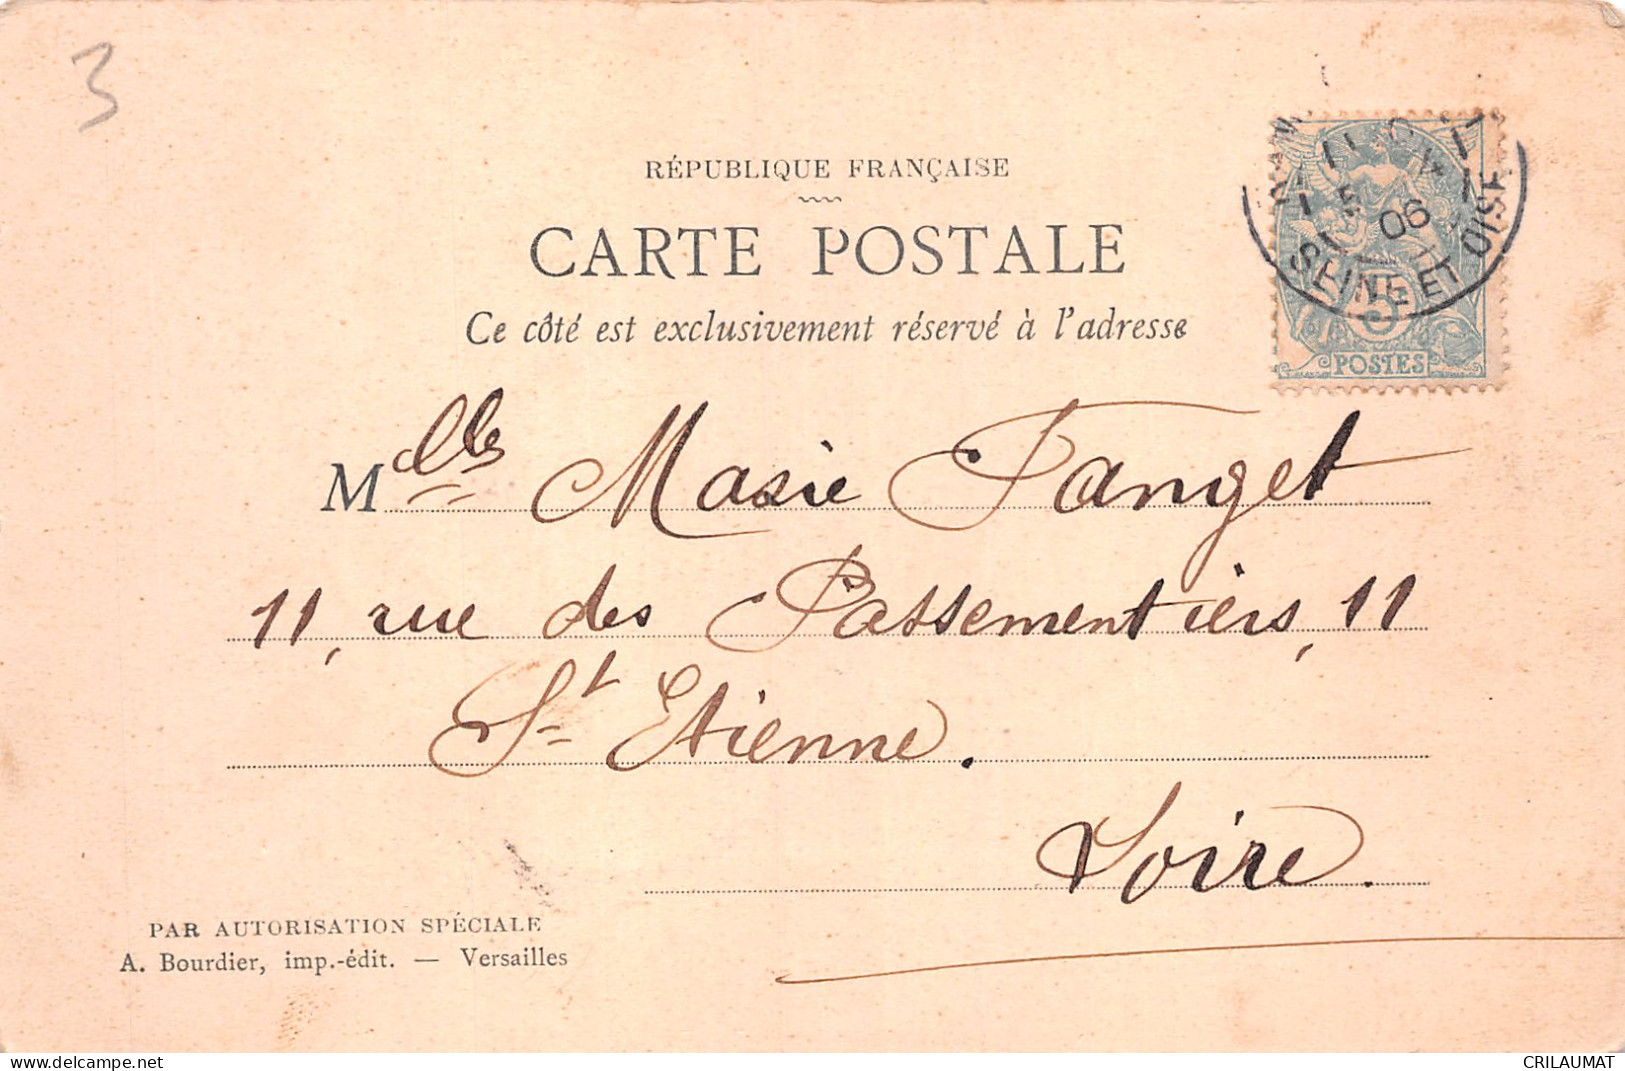 3
RÉPUBLIQUE FRANÇAISE
CARTE POSTALE
Ce côté est exclusivement réservé à l'adresse
06
SEINE ET OISE
5
POSTES
Mlle Marie Fanget
11, rue des Passementiers, 11
St Etienne.
Loire.
PAR AUTORISATION SPÉCIALE
A. Bourdier, imp.-édit. — Versailles
www.delcampe.net
CRILAUMAT